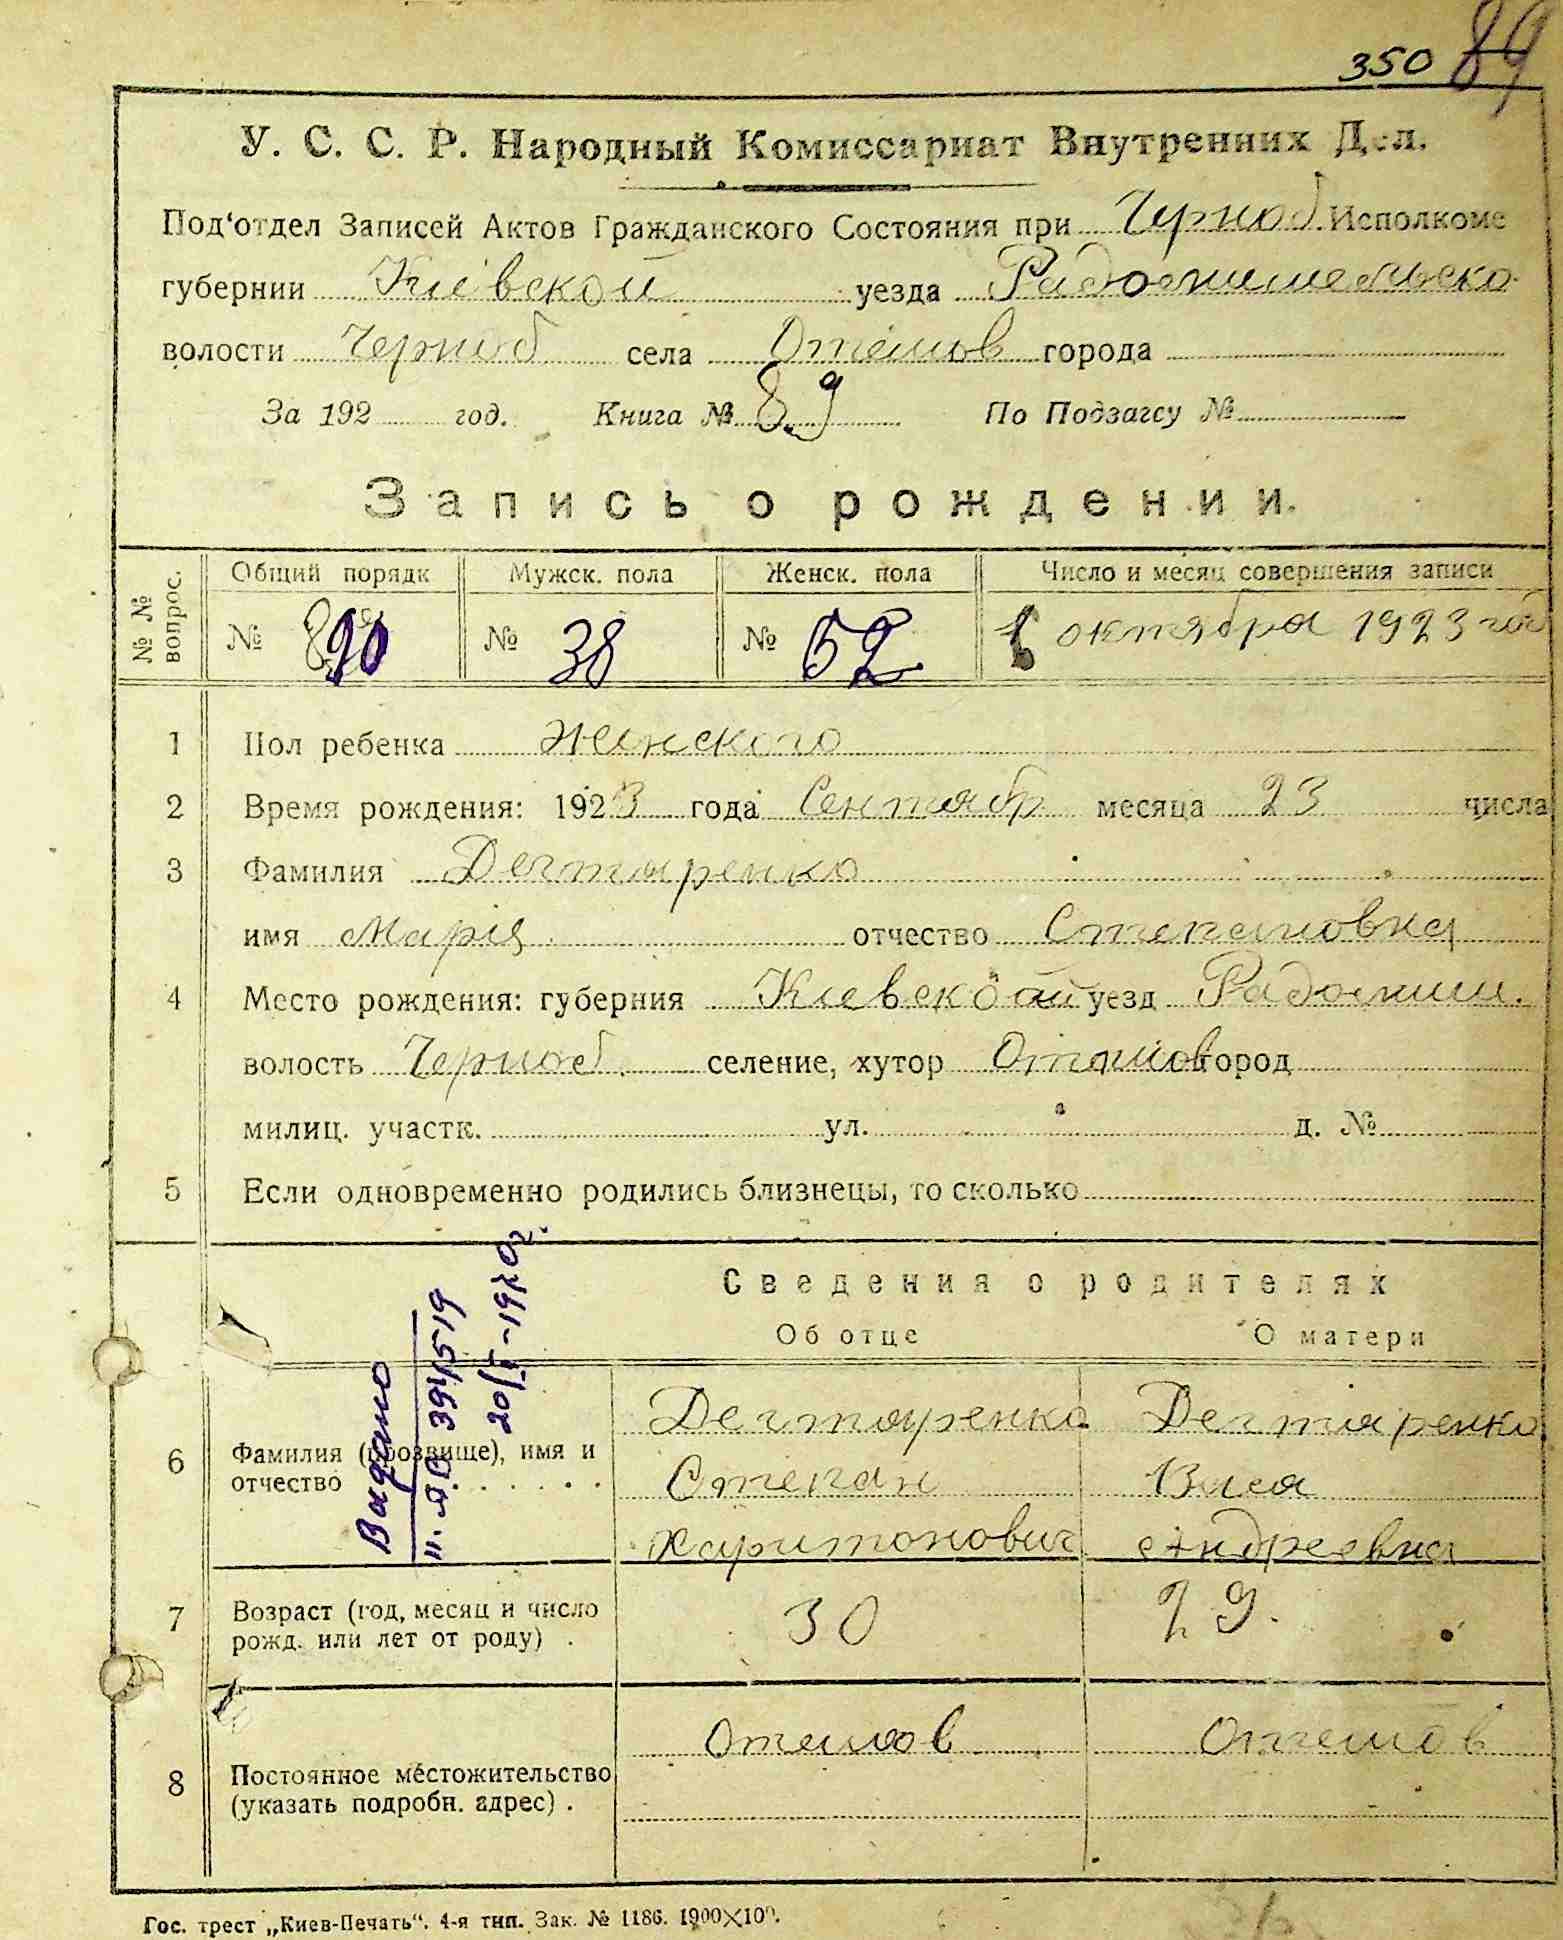 350 89
У. С. С. Р. Народный Комиссариат Внутренних Дел.
Под‘отдел Записей Актов Гражданского Состояния при Черноб. Исполкоме
губернии Киевской уезда Радомишельско
волости Черноб села Отешов города
За 192 год. Книга № 89 По Подзагсу №
Запись о рождении.
№ № вопрос. Общий порядк Мужск. пола Женск. пола Число и месяц совершения записи
№ 90 № 38 № 52 октября 1923 год
1 Пол ребенка женского
2 Время рождения: 1923 года Сентябр месяца 23 числа
3 Фамилия Дегтяренко
имя Марія отчество Степановна
4 Место рождения: губерния Киевской уезд Радомиш.
волость Черноб. селение, хутор Отешов город
милиц. участк. ул. д. №
5 Если одновременно родились близнецы, то сколько
Сведения о родителях
Об отце О матери
Видано
20/V-1970г.
6 Фамилия (прозвище), имя и отчество
Дегтяренко Дегтяренко
Степан
Харитонович Андреевна
7 Возраст (год, месяц и число рожд. или лет от роду) . 30 29.
8 Постоянное местожительство (указать подробн. адрес) . Отешов Отешов
Гос. трест „Киев-Печать“. 4-я тип. Зак. № 1186. 1900×100.